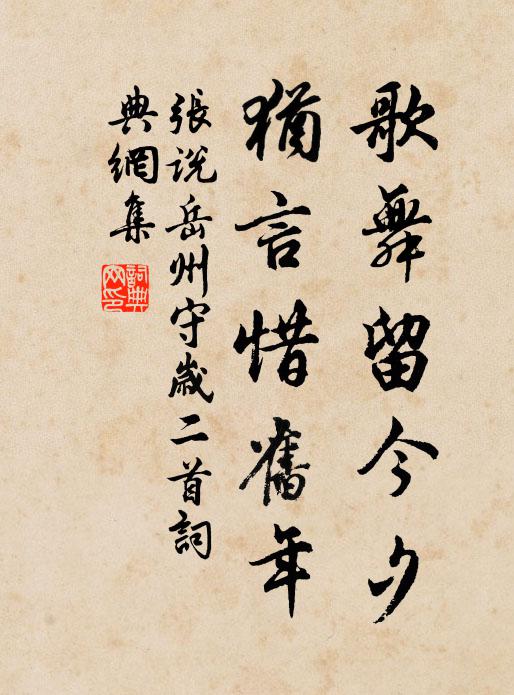 歌舞留今夕
猶言惜舊年
張說岳州守歲二首詞
典網集
詞典網印